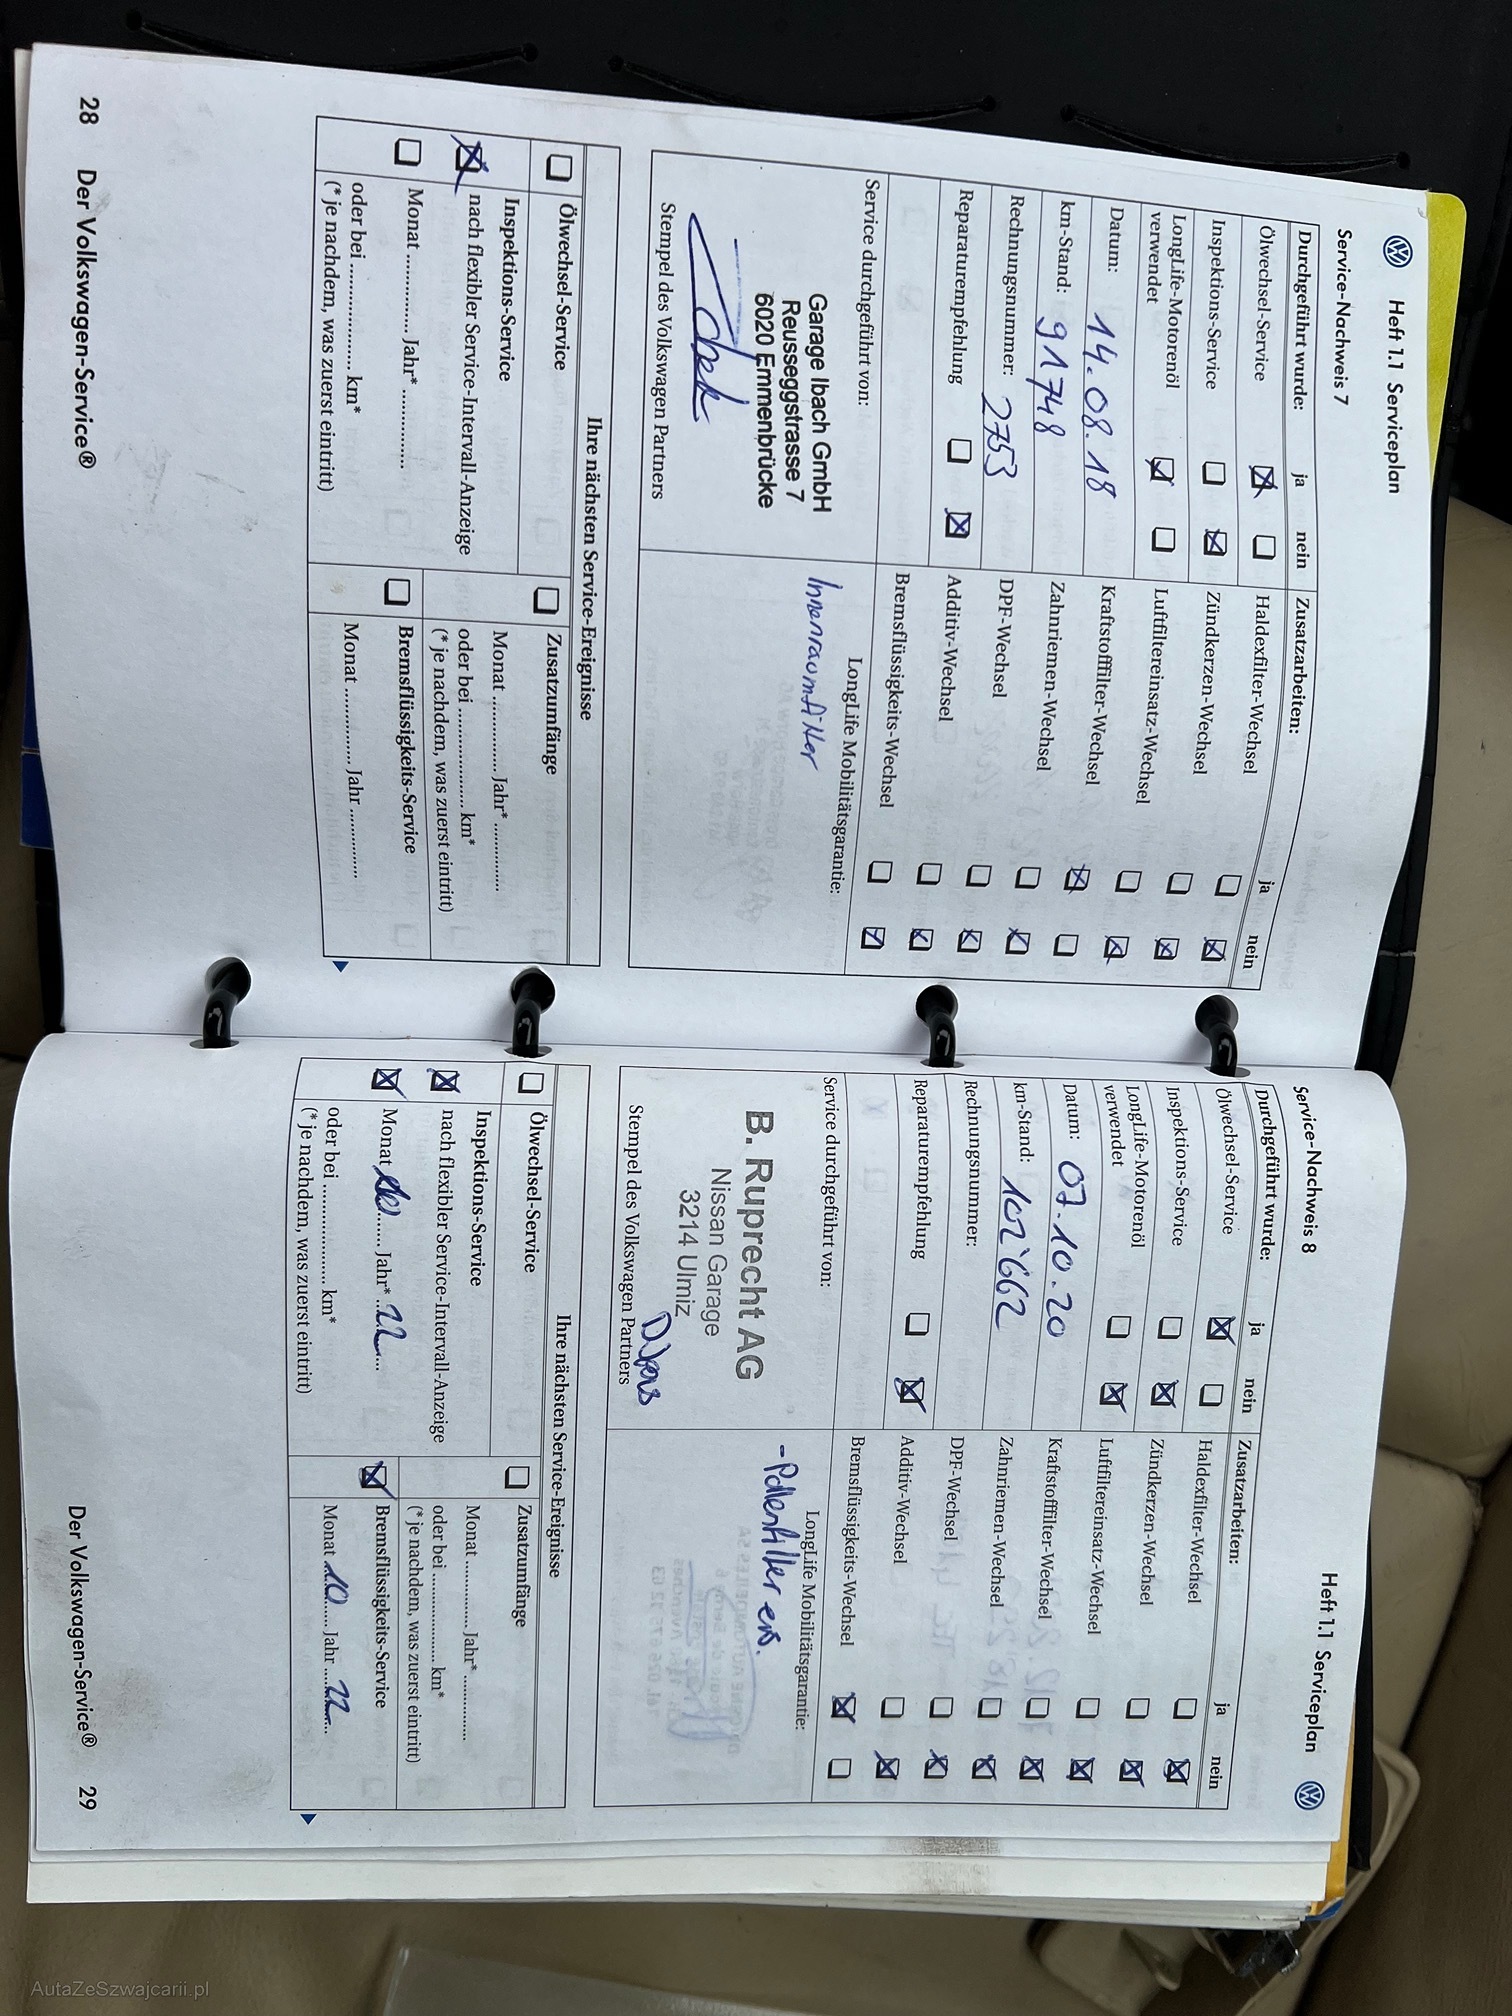 Heft 1.1 Serviceplan
Service-Nachweis 7
Durchgeführt wurde: ja nein
Ölwechsel-Service
Inspektions-Service
LongLife-Motorenöl
verwendet
Datum: 14.08.18
km-Stand: 91748
Rechnungsnummer: 2753
Reparaturempfehlung
Service durchgeführt von:
Garage Ibach GmbH
Reusseggstrasse 7
6020 Emmenbrücke
Stempel des Volkswagen Partners
Zusatzarbeiten: ja nein
Haldexfilter-Wechsel
Zündkerzen-Wechsel
Luftfiltereinsatz-Wechsel
Kraftstofffilter-Wechsel
Zahnriemen-Wechsel
DPF-Wechsel
Additiv-Wechsel
Bremsflüssigkeits-Wechsel
LongLife Mobilitätsgarantie:
Innenraumfilter
Ihre nächsten Service-Ereignisse
Ölwechsel-Service
Inspektions-Service
nach flexibler Service-Intervall-Anzeige
Monat .............. Jahr* ..............
oder bei ..................... km*
(* je nachdem, was zuerst eintritt)
Zusatzumfänge
Monat .............. Jahr* ..............
oder bei ..................... km*
(* je nachdem, was zuerst eintritt)
Bremsflüssigkeits-Service
Monat .............. Jahr ..............
28 Der Volkswagen-Service®
Heft 1.1 Serviceplan
Service-Nachweis 8
Durchgeführt wurde: ja nein
Ölwechsel-Service
Inspektions-Service
LongLife-Motorenöl
verwendet
Datum: 07.10.20
km-Stand: 102'662
Rechnungsnummer:
Reparaturempfehlung
Service durchgeführt von:
B. Ruprecht AG
Nissan Garage
3214 Ulmiz
Stempel des Volkswagen Partners
Zusatzarbeiten: ja nein
Haldexfilter-Wechsel
Zündkerzen-Wechsel
Luftfiltereinsatz-Wechsel
Kraftstofffilter-Wechsel
Zahnriemen-Wechsel
DPF-Wechsel
Additiv-Wechsel
Bremsflüssigkeits-Wechsel
LongLife Mobilitätsgarantie:
- Pollenfilter ers.
Ihre nächsten Service-Ereignisse
Ölwechsel-Service
Inspektions-Service
nach flexibler Service-Intervall-Anzeige
Monat ........ Jahr* 22
oder bei ..................... km*
(* je nachdem, was zuerst eintritt)
Zusatzumfänge
Monat .............. Jahr* ..............
oder bei ..................... km*
(* je nachdem, was zuerst eintritt)
Bremsflüssigkeits-Service
Monat 10 Jahr 22
Der Volkswagen-Service® 29
AutaZeSzwajcarii.pl